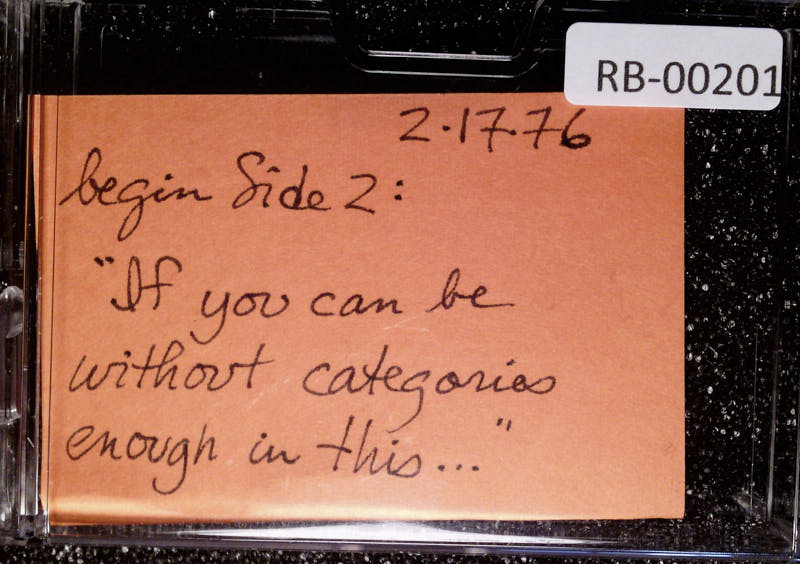 RB-00201
2·17·76
begin Side 2:
"If you can be
without categories
enough in this..."